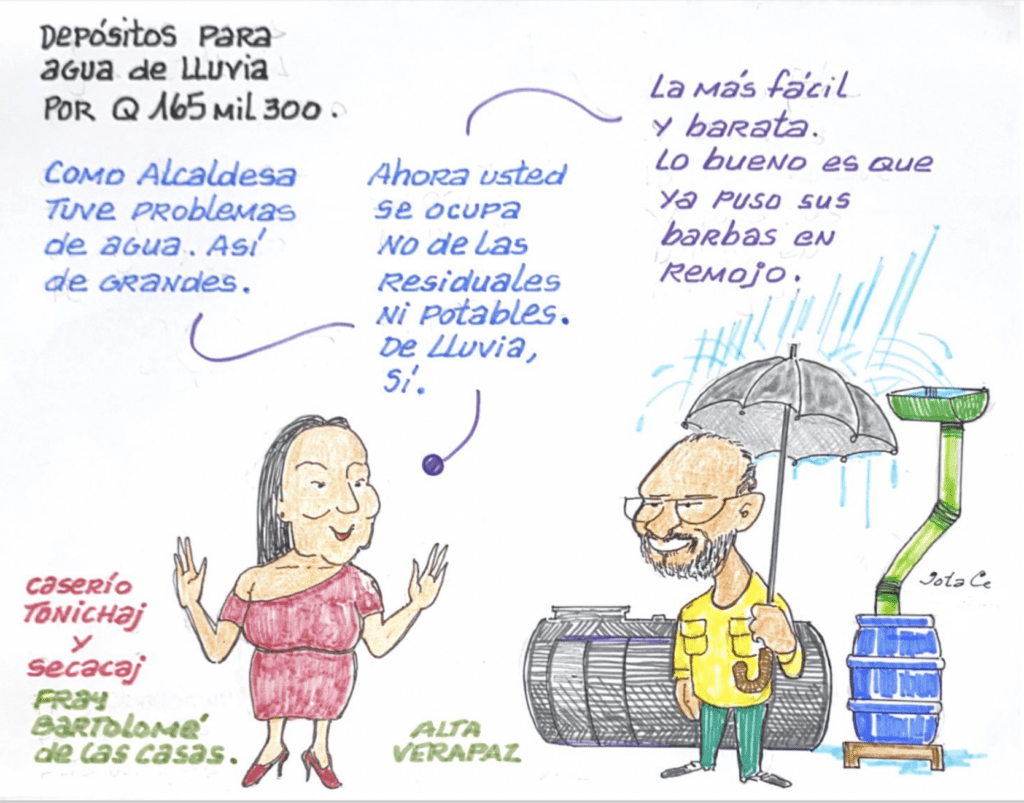 Depósitos para
agua de lluvia
por Q 165 mil 300.
Como Alcaldesa
tuve problemas
de agua. Así
de grandes.
Ahora usted
se ocupa
no de las
residuales
ni potables.
De lluvia,
sí.
La más fácil
y barata.
Lo bueno es que
ya puso sus
barbas en
remojo.
Jota Ce
caserío
Tonichaj
y
Secacaj
Fray
Bartolomé
de las Casas.
Alta
Verapaz